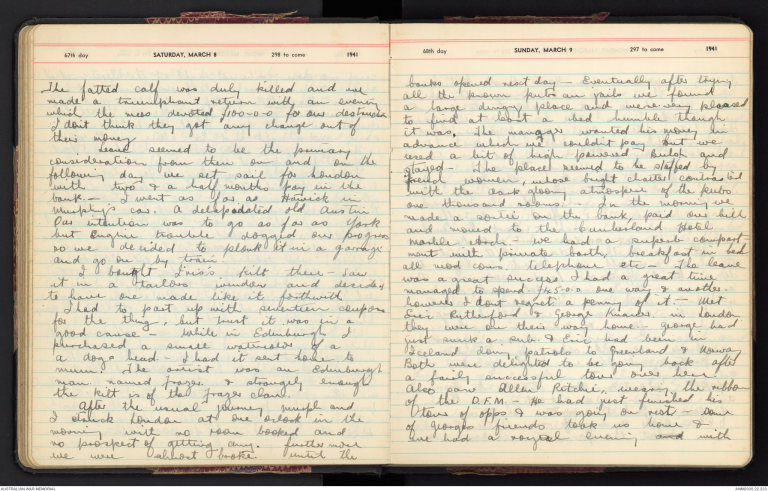 67th day SATURDAY, MARCH 8 298 to come 1941
The fatted calf was duly killed and we
made a triumphant return with an evening
which the mess devoted £100-0-0 for our destruction
I don't think they got any change out of
their money.
Leave seemed to be the primary
consideration from then on and on the
following day we set sail for London
with two & a half months pay in the
bank. — I went as far as Hawick in
Murphy's car. A delapadated old Austin
Our intention was to go as far as York
but Engine trouble dogged our progress
so we decided to plonk it in a garage
and go on by train.
I bought Iris's kilt there - saw
it in a tailors window and decided
to have one made like it forthwith
I had to part up with seventeen coupons
for the thing, but trust it was in a
good cause - While in Edinburgh I
purchased a small watercolor of a
a dogs head - I had it sent home to
mum. The artist was an Edinburgh
man named Frazer & strangely enough
the kilt is of the Frazer clan.
After the usual journey Murph and
I struck London at one oclock in the
morning with no room booked and
no prospect of getting any. Furthermore
we were almost broke. until the
68th day SUNDAY, MARCH 9 297 to come 1941
banks opened next day — Eventually after trying
all the known pubs in vain we found
a large dingy place and were very pleased
to find at least a bed humble though
it was. The manager wanted his money in
advance which we couldn't pay but we
used a bit of high powered and
stayed - The place seemed to be staffed by
French women, whose bright chatter contrasted
with the dark gloomy atmosphere of the pubs
one thousand rooms. - In the morning we
made a sortie on the bank, paid our bill
and moved to the Cumberland Hotel
Marble Arch - we had a superb compart
ment with private bath, breakfast in bed
all mod cons. telephone etc — The leave
was a great success I had a great time
managed to spend £45-0-0 one way & another.
however I dont regret a penny of it. — Met
Eric Rutherford & George in London
they were on their way home - George had
just sunk a sub. & Eric had been in
Iceland doing patrols to Greenland & Norway
Both were delighted to be going back after
a fairly successful tour over here.
Also saw Allan Ritchie, wearing the ribbon
of the D.F.M. - He had just finished his
tour of opps & was going on rest - some
of Georges friends took us home &
we had a royal evening and with
AUSTRALIAN WAR MEMORIAL